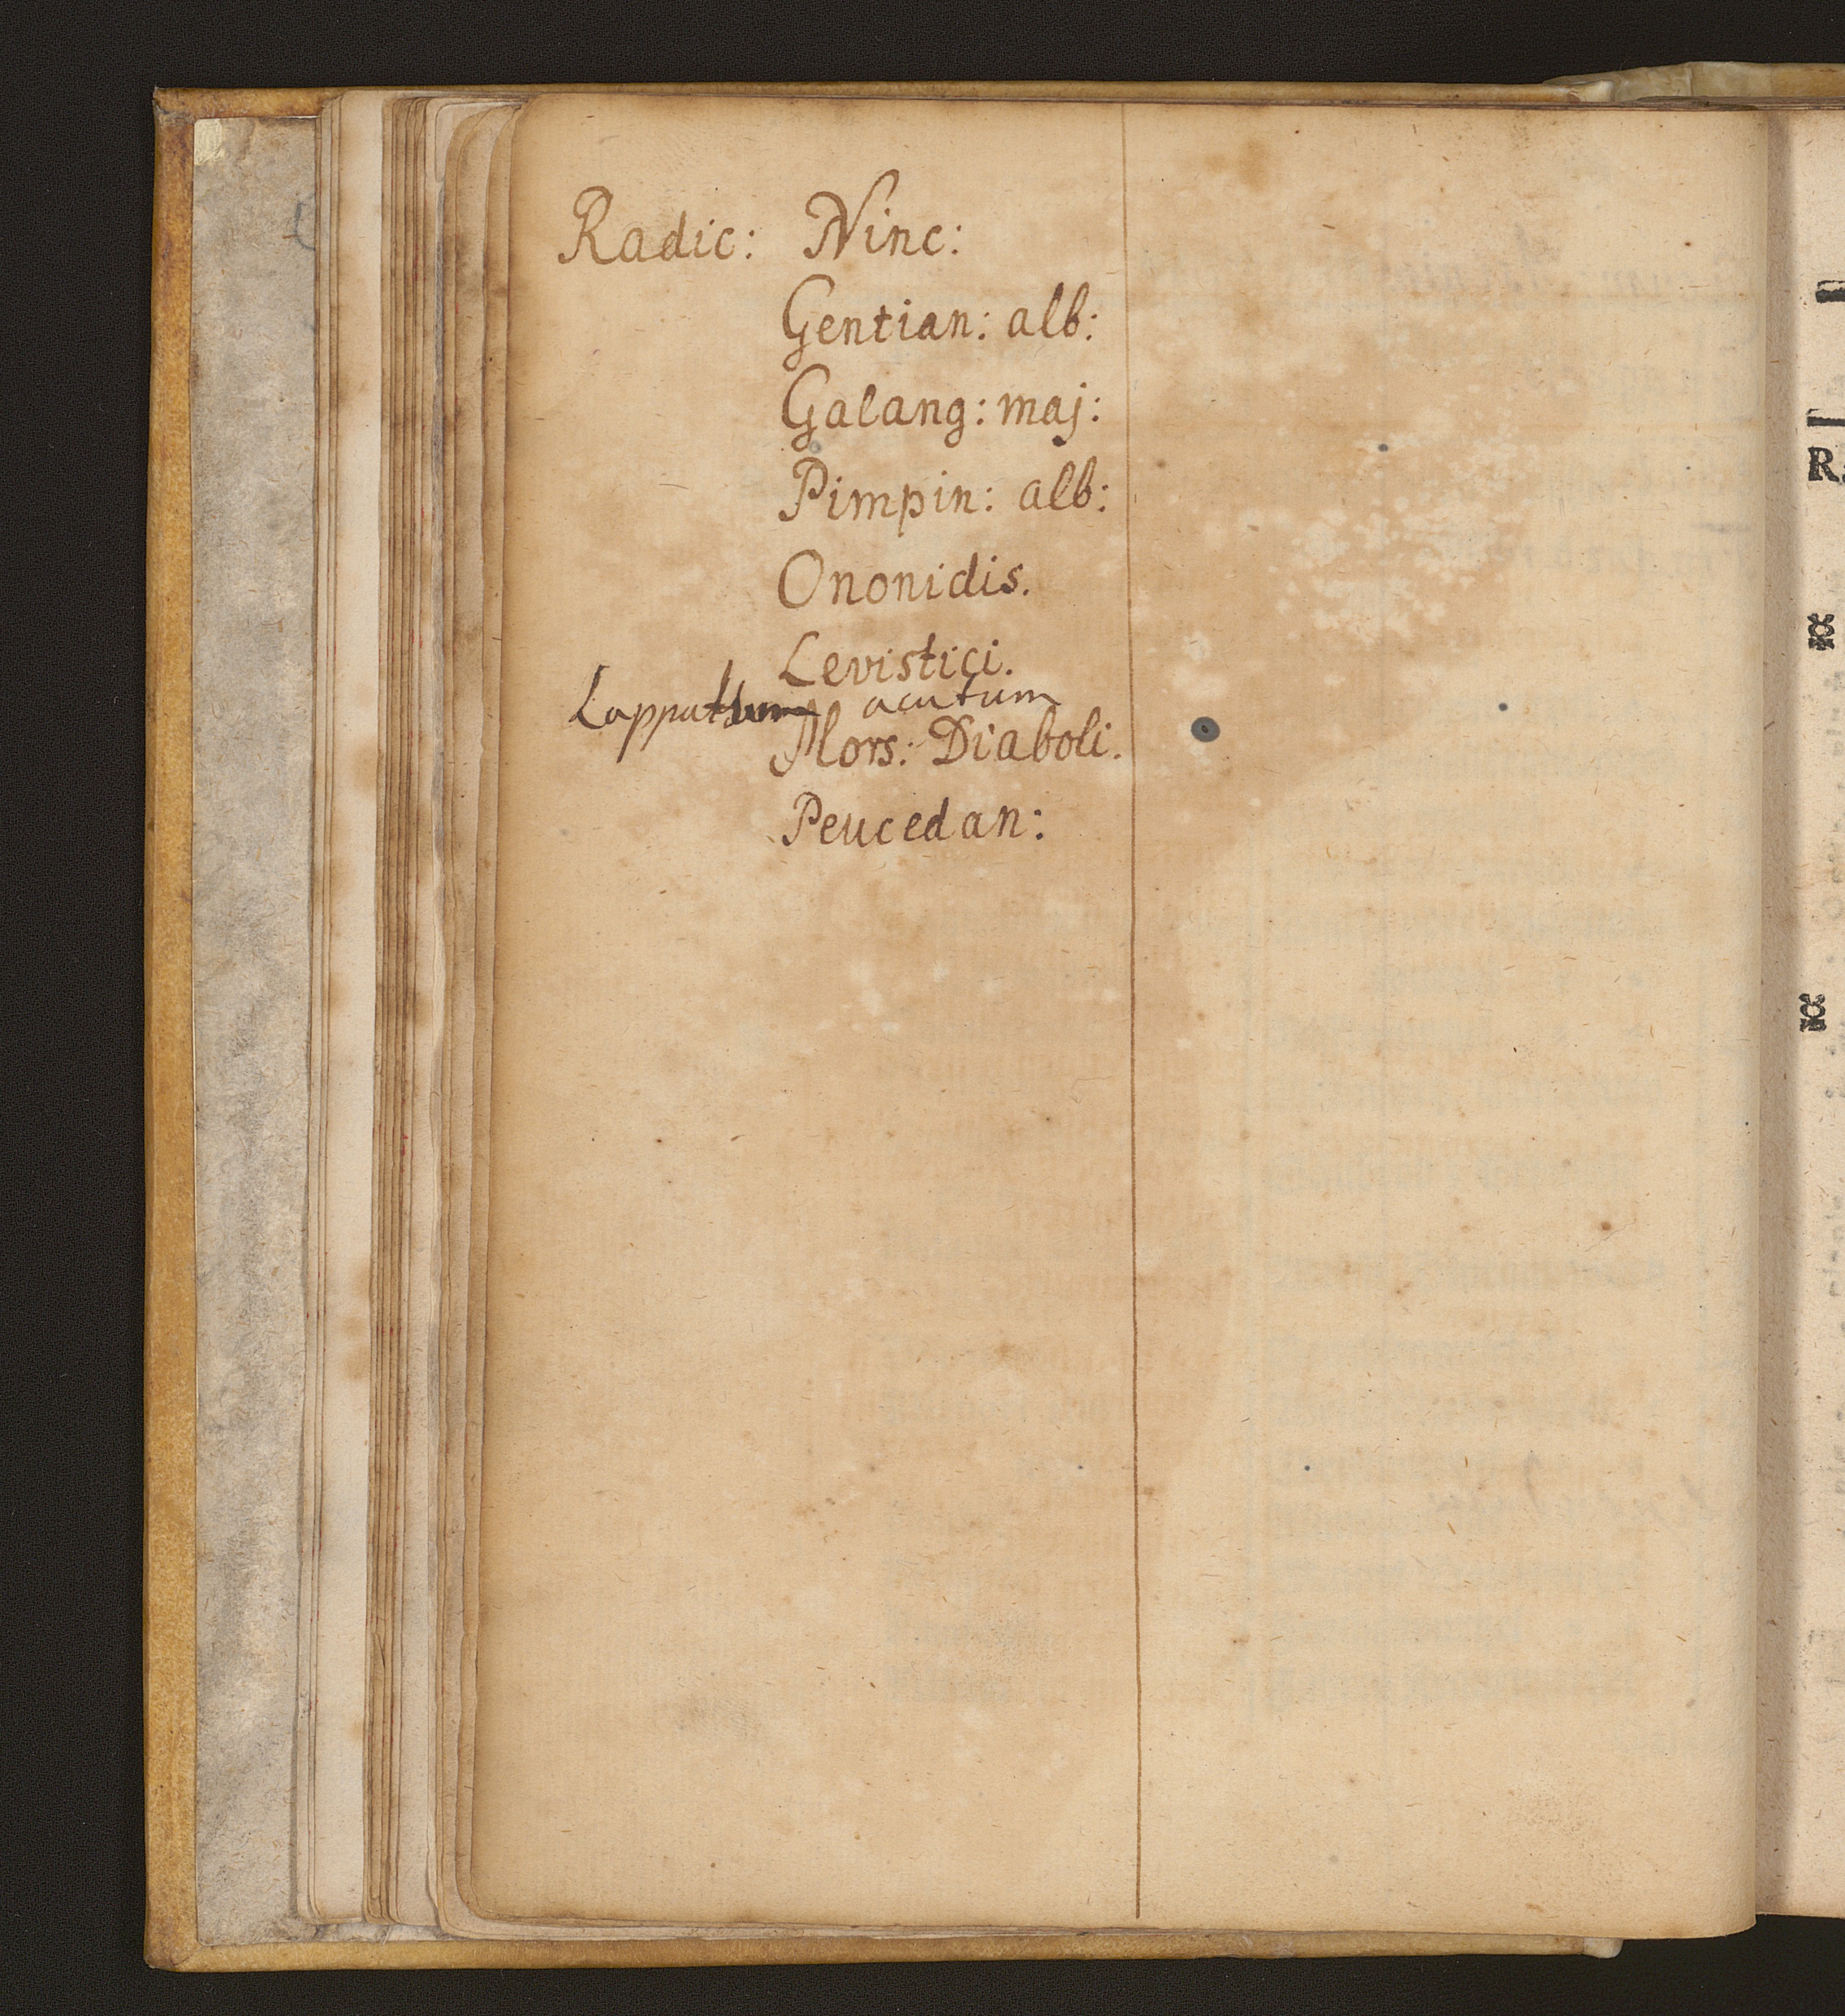 Radic: Ninc:
Gentian: alb:
Galang: maj:
Pimpin: alb:
Ononidis.
Levistici.
Lappathum acutum
Mors: Diaboli.
Peucedan:
R